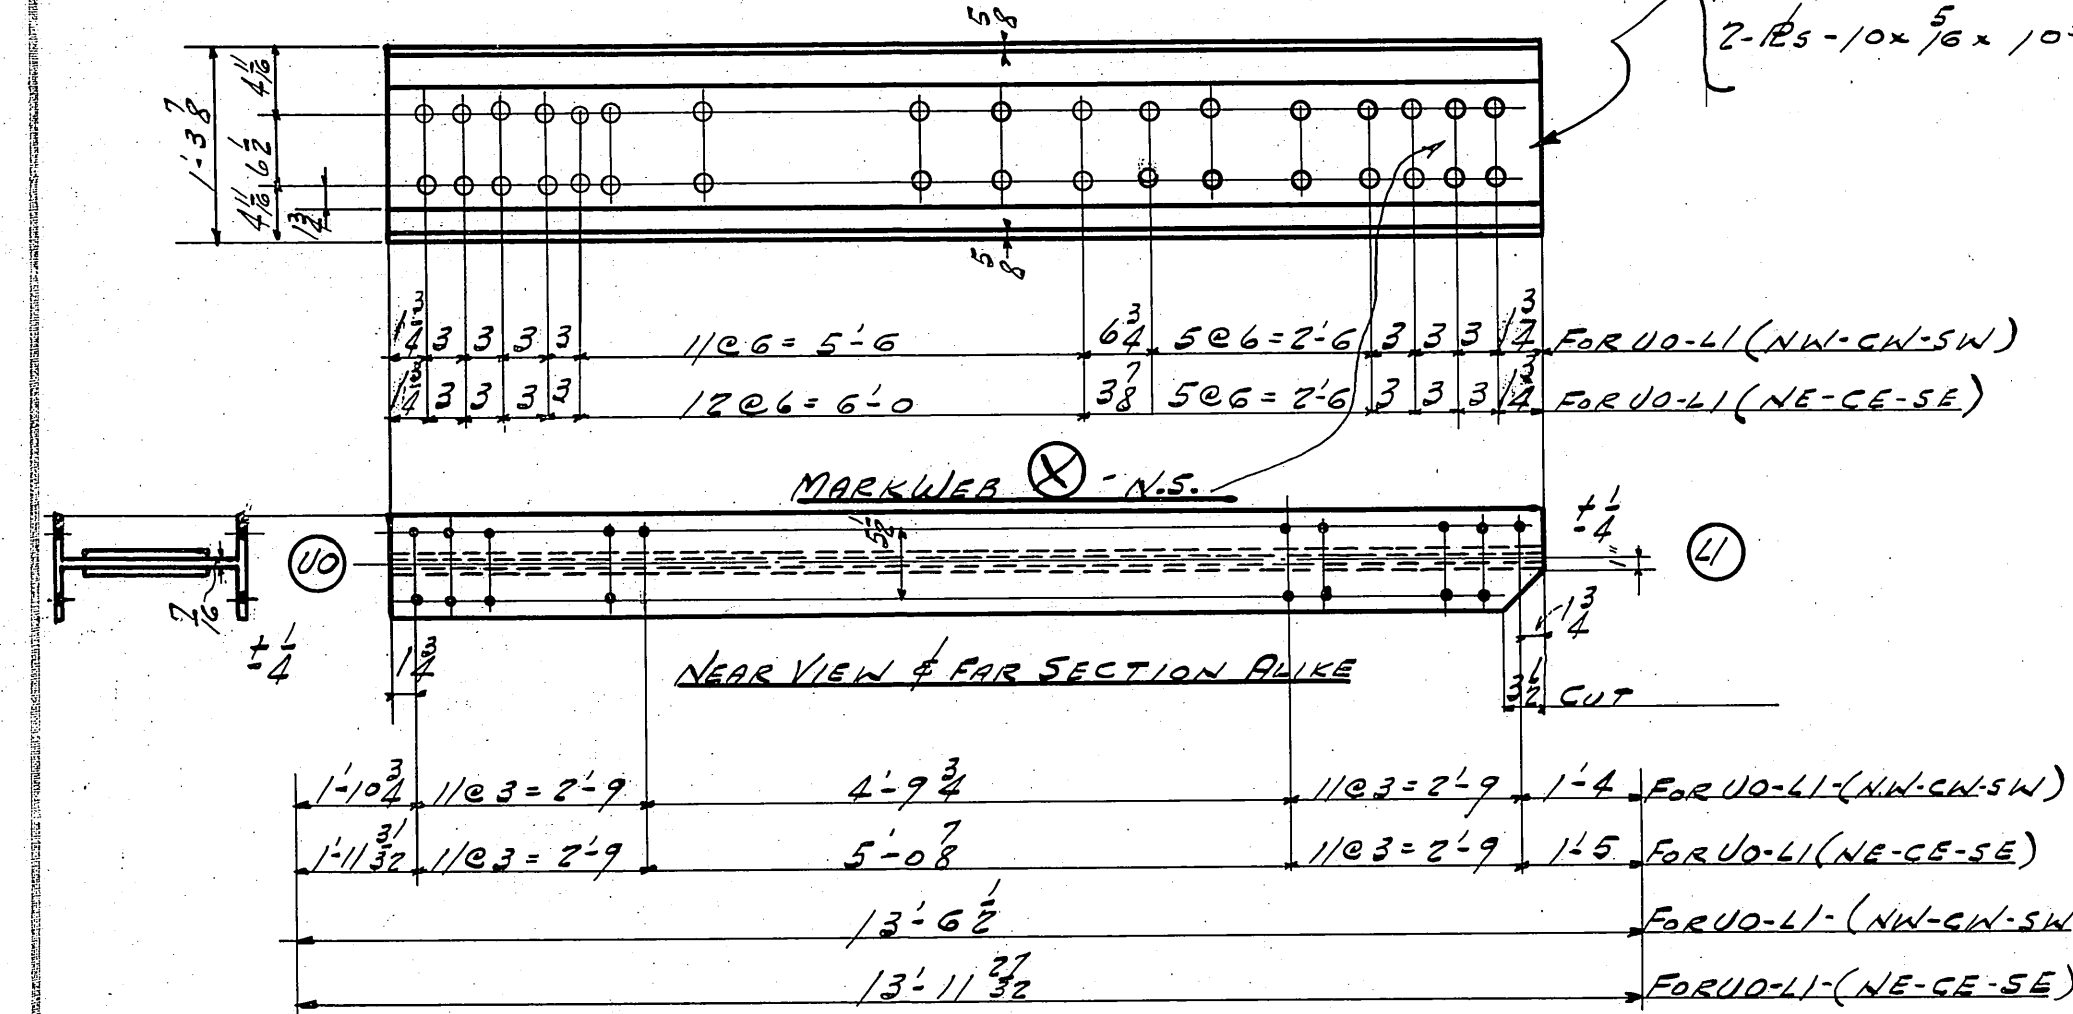 5/8
2-PLs-10x 5/16 x 10-
4 11/16
1'-3 7/8
6 1/2
4 11/16
1 3/4
5/8
1 3/4 3 3 3 3 11@6 = 5'-6 6 3/4 5@6=2'-6 3 3 3 1 3/4 FOR UO-L1 (NW-CW-SW)
1 3/4 3 3 3 3 12@6 = 6'-0 3 7/8 5@6=2'-6 3 3 3 1 3/4 FOR UO-L1 (NE-CE-SE)
MARK WEB X - N.S.
± 1/4
5 1/2
UO
1"
L1
7/16
± 1/4
1 3/4
1 3/4
NEAR VIEW & FAR SECTION ALIKE
3 1/2 CUT
1'-10 3/4 11@3 = 2'-9 4'-9 3/4 11@3 = 2'-9 1'-4 FOR UO-L1-(N.W-CW-SW)
1'-11 31/32 11@3 = 2'-9 5'-0 7/8 11@3 = 2'-9 1'-5 FOR UO-L1 (NE-CE-SE)
13'-6 1/2 FOR UO-L1-(NW-CW-SW
13'-11 27/32 FOR UO-L1-(NE-CE-SE)